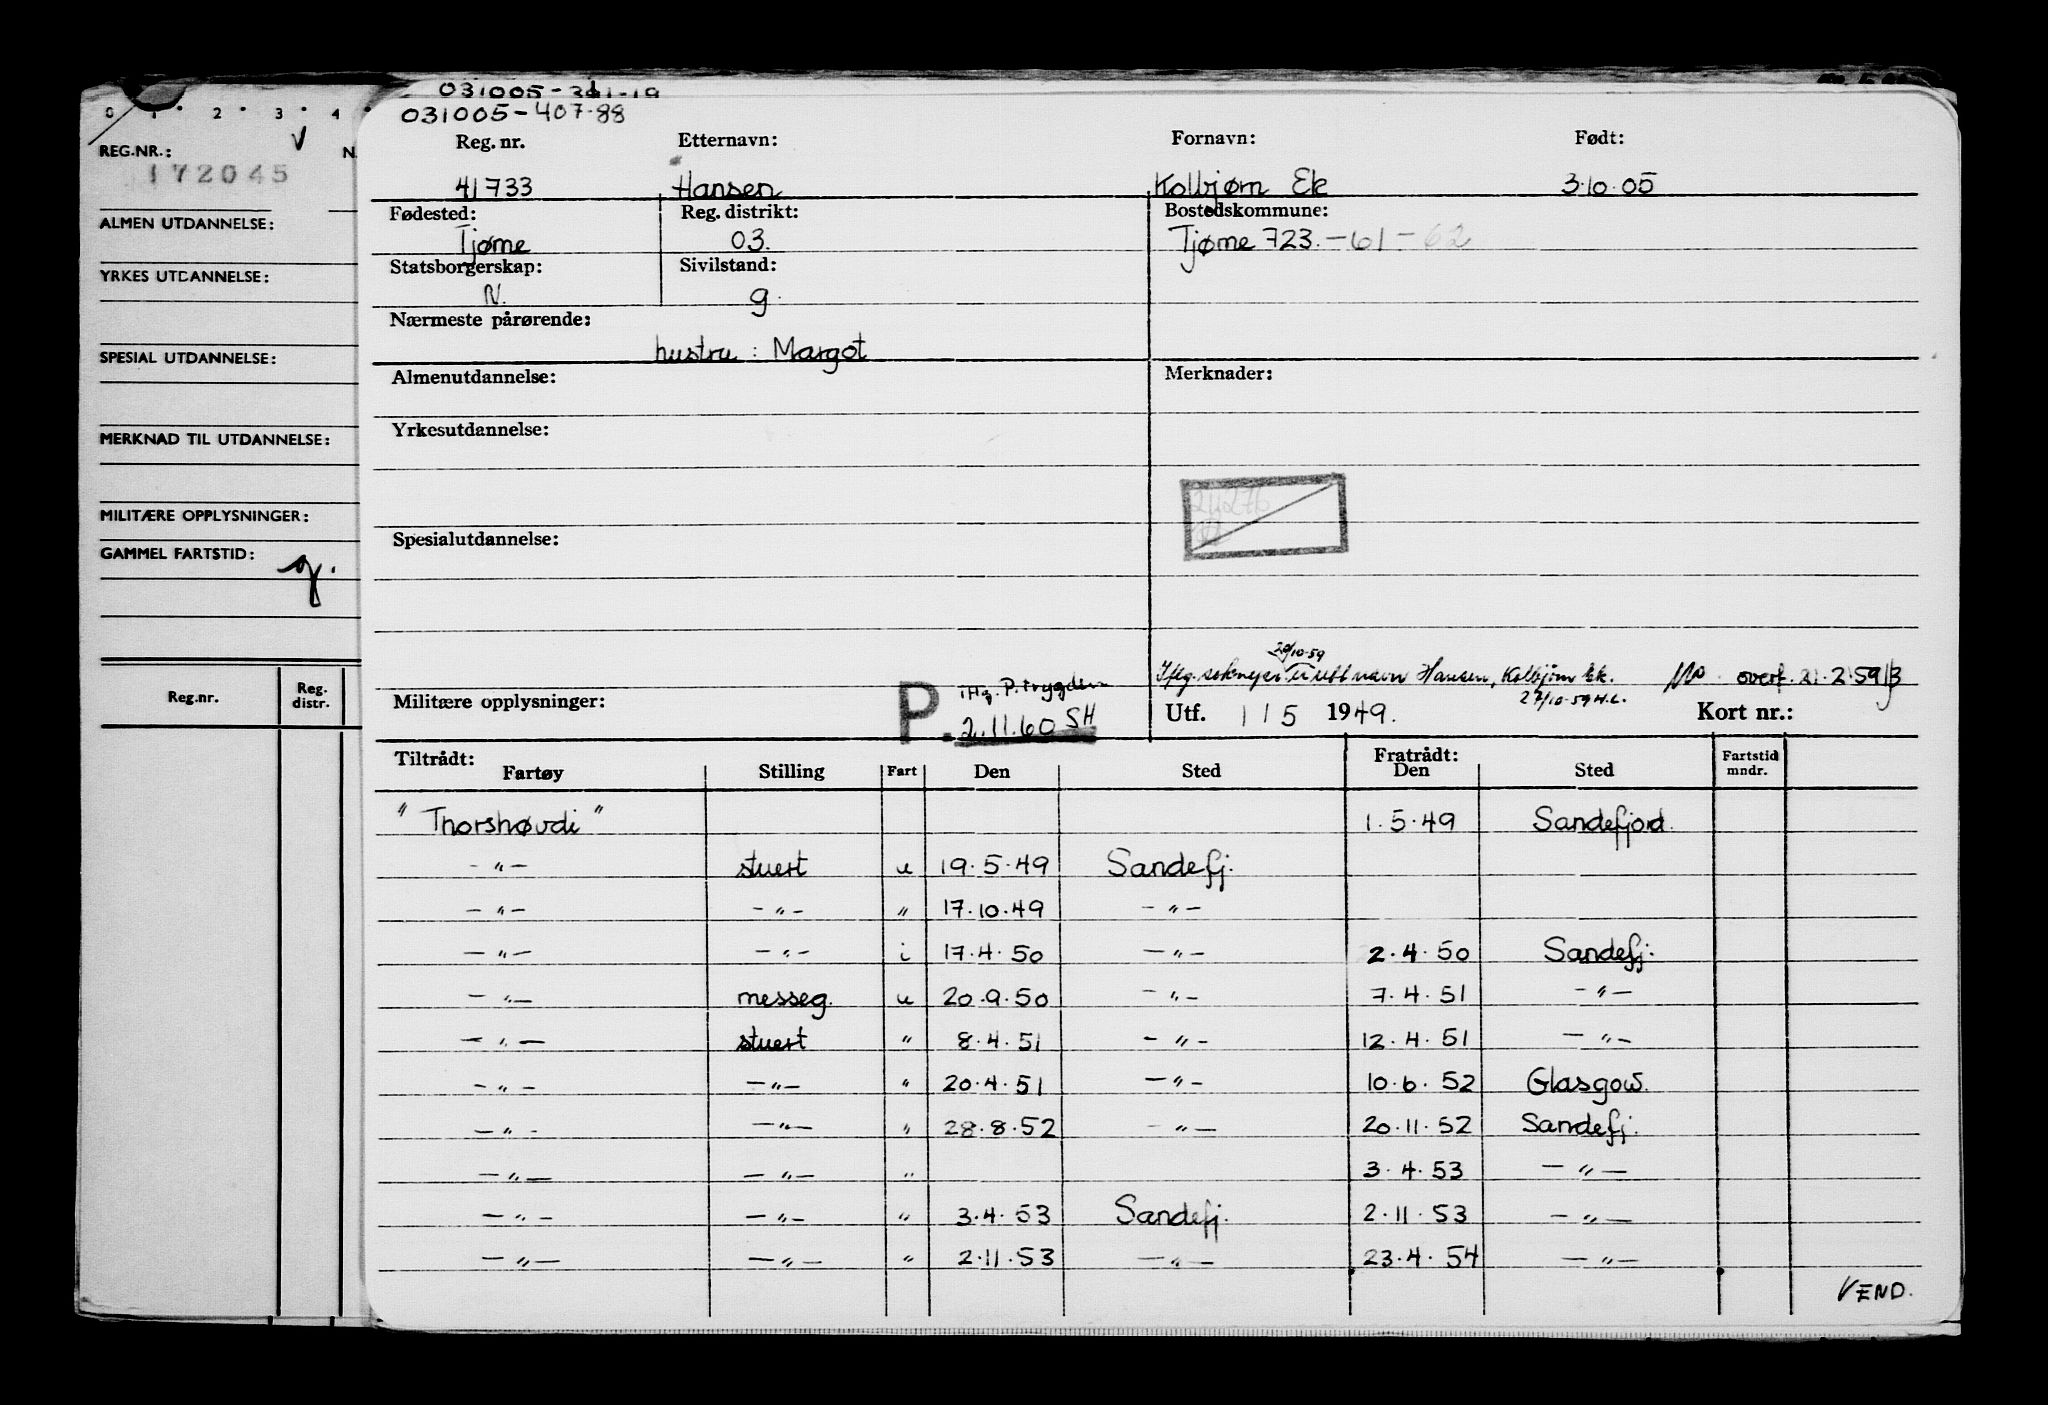 0 1 2 3 4
REG.NR.: N.
172045
ALMEN UTDANNELSE:
YRKES UTDANNELSE:
SPESIAL UTDANNELSE:
MERKNAD TIL UTDANNELSE:
MILITÆRE OPPLYSNINGER:
GAMMEL FARTSTID:
Reg.nr. Reg. distr.
031005-407-88
Reg. nr. Etternavn: Fornavn: Født:
41733 Hansen Kolbjørn Ek 3.10.05
Fødested: Reg. distrikt: Bostedskommune:
Tjøme 03. Tjøme 723.-61-62
Statsborgerskap: Sivilstand:
N. g.
Nærmeste pårørende:
hustru: Margot
Almenutdannelse: Merknader:
Yrkesutdannelse:
Spesialutdannelse:
29/10-59
Iflg. navn Hansen, Kolbjørn Ek. overf. 21.2.59
27/10-59 H.L.
Militære opplysninger: P. P. trygden
2.11.60 SH
Utf. 1 5 1949. Kort nr.:
Tiltrådt: Fratrådt:
Fartøy Stilling Fart Den Sted Den Sted Fartstid mndr.
"Thorshøvdi" 1.5.49 Sandefjord.
-"- stuert u 19.5.49 Sandefj.
-"- -"- " 17.10.49 -"-
-"- -"- i 17.4.50 -"- 2.4.50 Sandefj.
-"- messeg. u 20.9.50 -"- 7.4.51 -"-
-"- stuert " 8.4.51 -"- 12.4.51 -"-
-"- -"- " 20.4.51 -"- 10.6.52 Glasgow.
-"- -"- " 28.8.52 -"- 20.11.52 Sandefj.
-"- -"- " 3.4.53 -"-
-"- -"- " 3.4.53 Sandefj. 2.11.53 -"-
-"- -"- " 2.11.53 -"- 23.4.54 -"-
VEND.